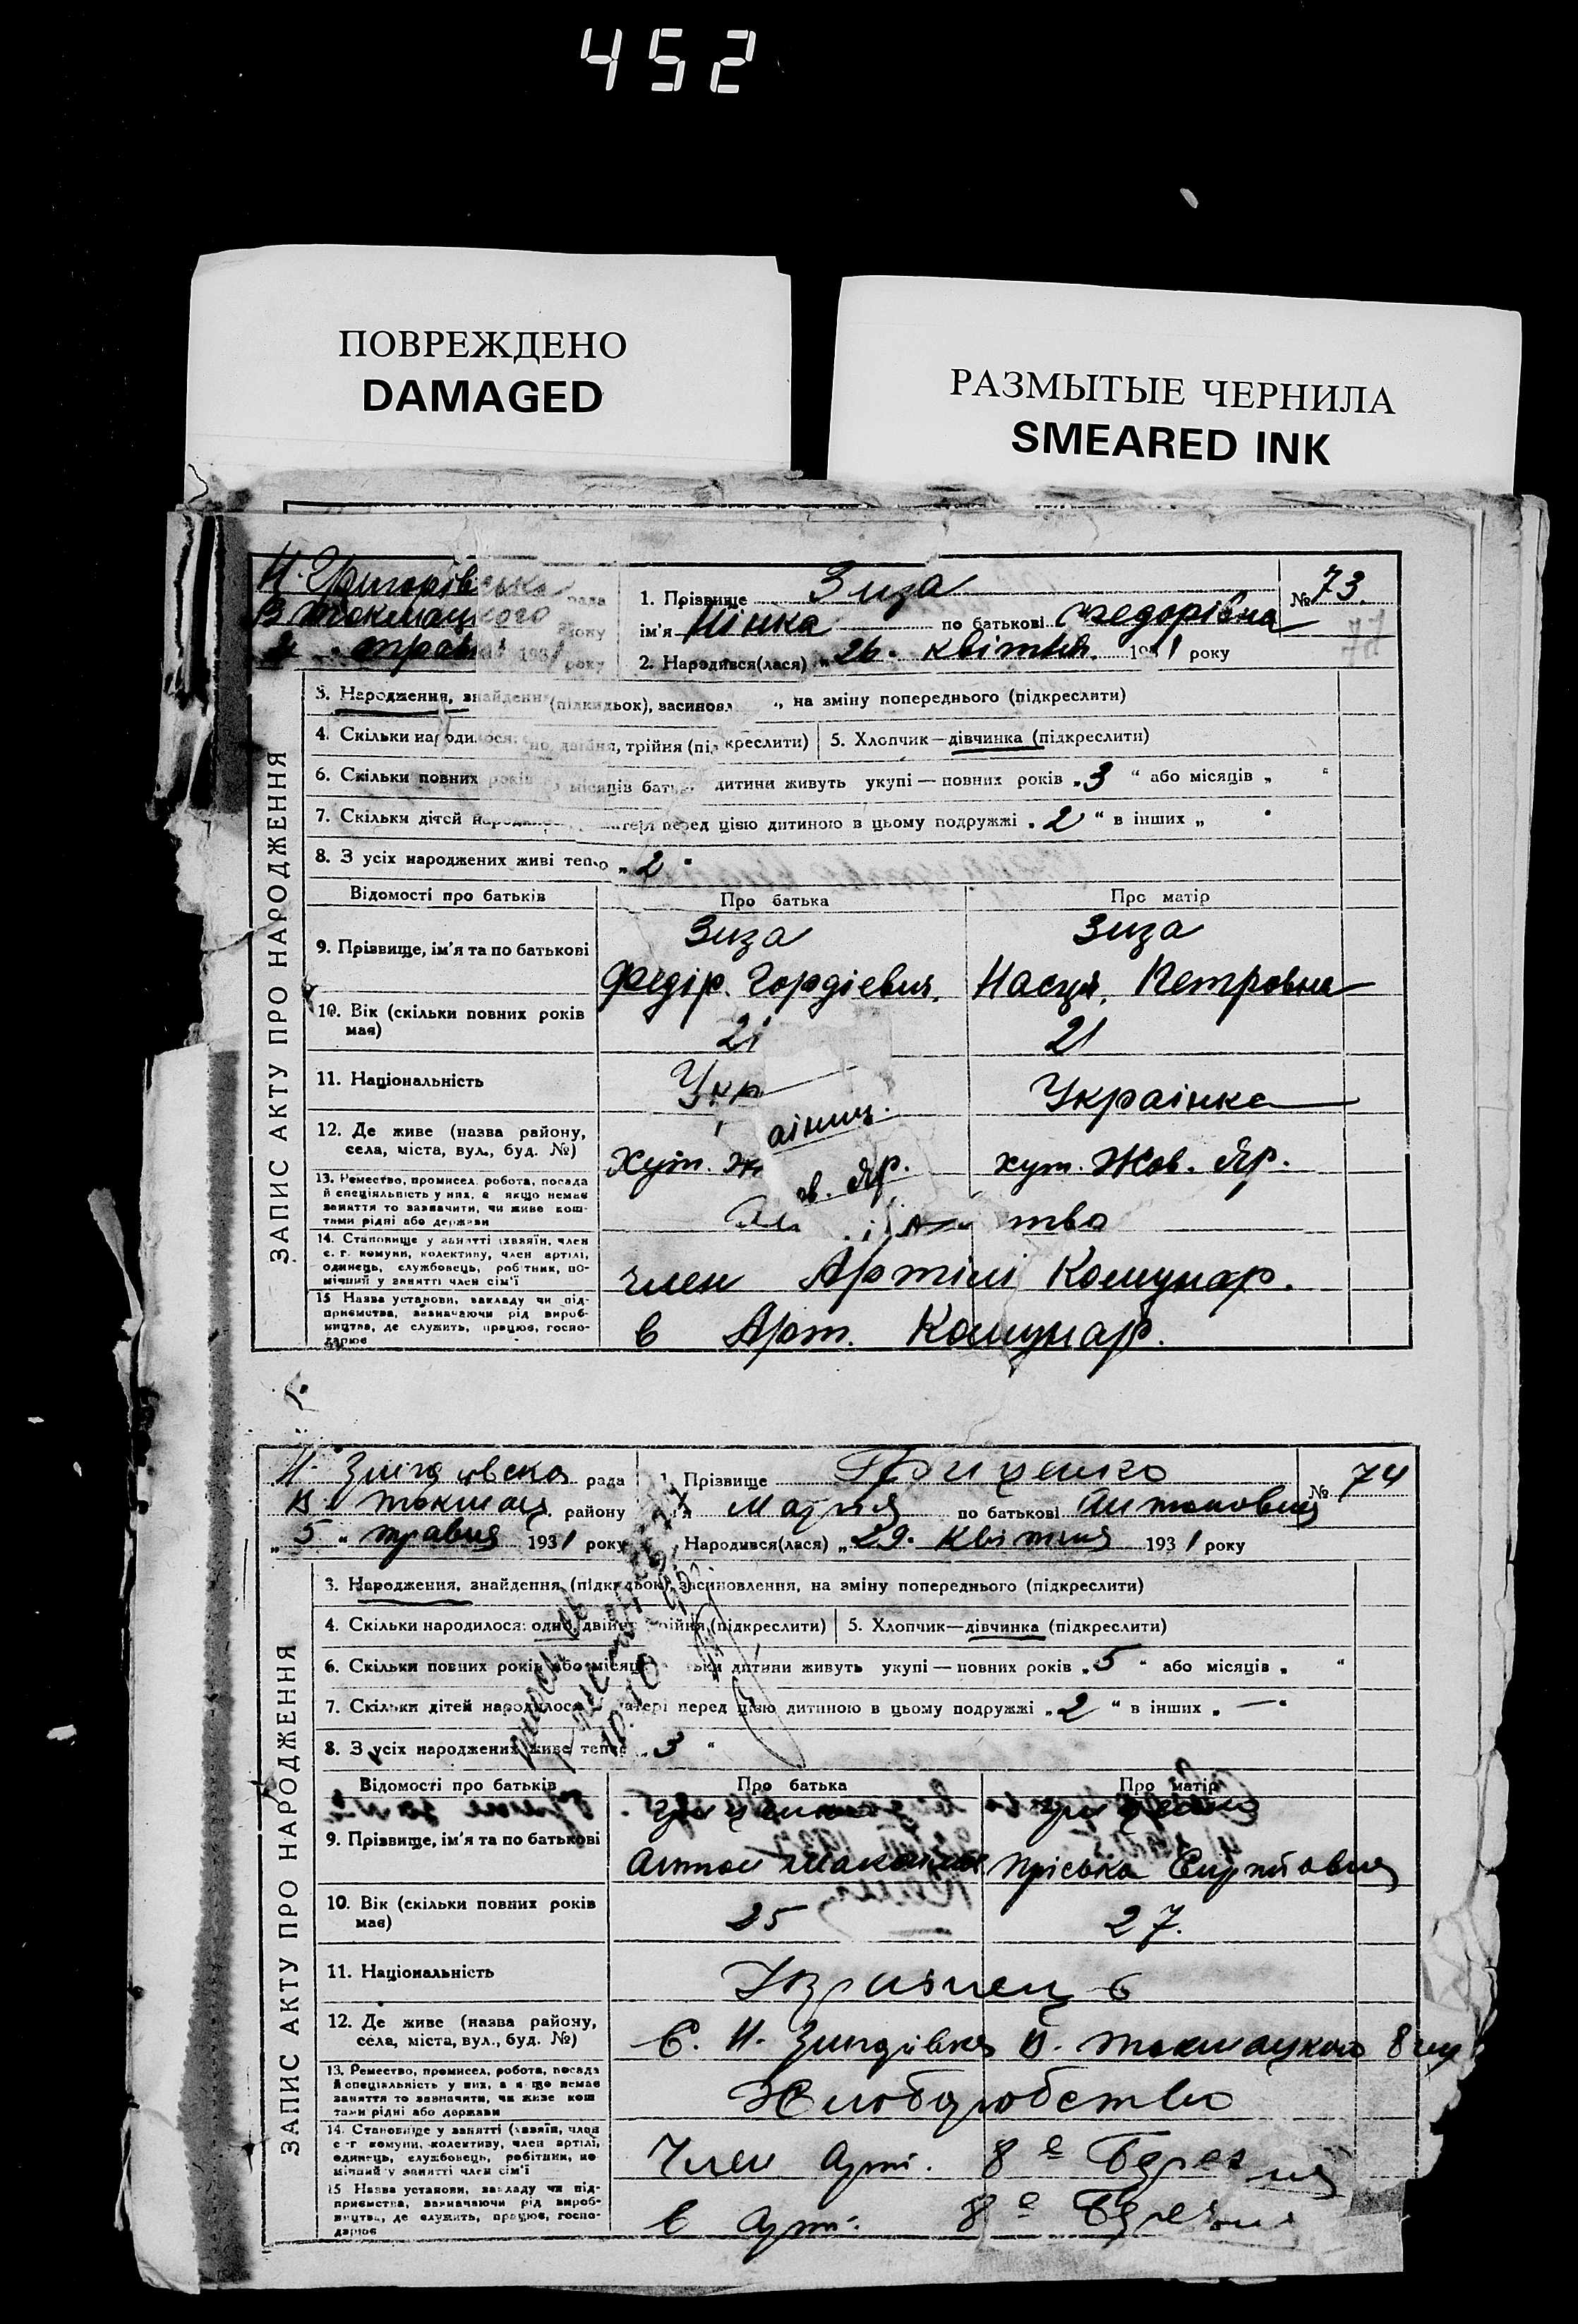 452
ПОВРЕЖДЕНО
DAMAGED
РАЗМЫТЫЕ ЧЕРНИЛА
SMEARED INK
ЗАПИС АКТУ ПРО НАРОДЖЕННЯ
рада
В Токмацького
року
1931 року
1. Прізвище Зиза
№ 73.
ім'я Нінка по батькові Федорівна
2. Народився(лася) „26. квітня 1931 року
3. Народження, знайдення (підкидьок), засиновл , на зміну попереднього (підкреслити)
4. Скільки народилося: но, двійня, трійня (підкреслити) 5. Хлопчик—дівчинка (підкреслити)
6. Скільки повних років місяців батьки дитини живуть укупі — повних років „3 “ або місяців „ “
7. Скільки дітей народилося матері перед цією дитиною в цьому подружжі „2 “ в інших „ “
8. З усіх народжених живі тепер „2 “
Відомості про батьків Про батька Про матір
9. Прізвище, ім'я та по батькові
Зиза Зиза
Федір. Гордієвич. Насця. Петровна
10. Вік (скільки повних років має)
21 21
11. Національність
Україниц. Українка
12. Де живе (назва району, села, міста, вул., буд. №)
Хут. Жов. Яр. хут. Жов. Яр.
13. Ремество, промисел, робота, посада й спеціяльність у них, а якщо немає заняття то зазначити, чи живе коштами рідні або держави
тво
14. Становище у занятті (хазяїн, член с.-г. комуни, колективу, член артілі, одинець, службовець, робітник, помічний у занятті член сім'ї
член Артілі Комунар.
15 Назва установи, закладу чи підприємства, зазначаючи рід виробництва, де служить, працює, господарює
в Арт. Комунар.
ЗАПИС АКТУ ПРО НАРОДЖЕННЯ
рада
В. Токмац. району
„ 5 “ травня 1931 року
1. Прізвище Гриценко
№ 74
Марія по батькові Антоновна
Народився(лася) „29. квітня 1931 року
3. Народження, знайдення (підкидьок), засиновлення, на зміну попереднього (підкреслити)
4. Скільки народилося: одно, двійня, трійня (підкреслити) 5. Хлопчик—дівчинка (підкреслити)
6. Скільки повних років або місяців батьки дитини живуть укупі — повних років „5 “ або місяців „ “
7. Скільки дітей народилося матері перед цією дитиною в цьому подружжі „2 “ в інших „ — “
8. З усіх народжених живе тепер „3 “
Відомості про батьків Про батька Про матір
9. Прізвище, ім'я та по батькові
Гриценко Гриценко
Антон Пріська
10. Вік (скільки повних років має)
25 27.
11. Національність
Українец
12. Де живе (назва району, села, міста, вул., буд. №)
С. Н. В. Токмацкого
13. Ремество, промисел, робота, посада й спеціяльність у них, а якщо немає заняття то зазначити, чи живе коштами рідні або держави
Хлюборобство
14. Становище у занятті (хазяїн, член с-г комуни, колективу, член артілі, одинець, службовець, робітник, помічний у занятті член сім'ї
Член арт. 8е Березня
15 Назва установи, закладу чи підприємства, зазначаючи рід виробництва, де служить, працює, господарює
в арт. 8е Березня